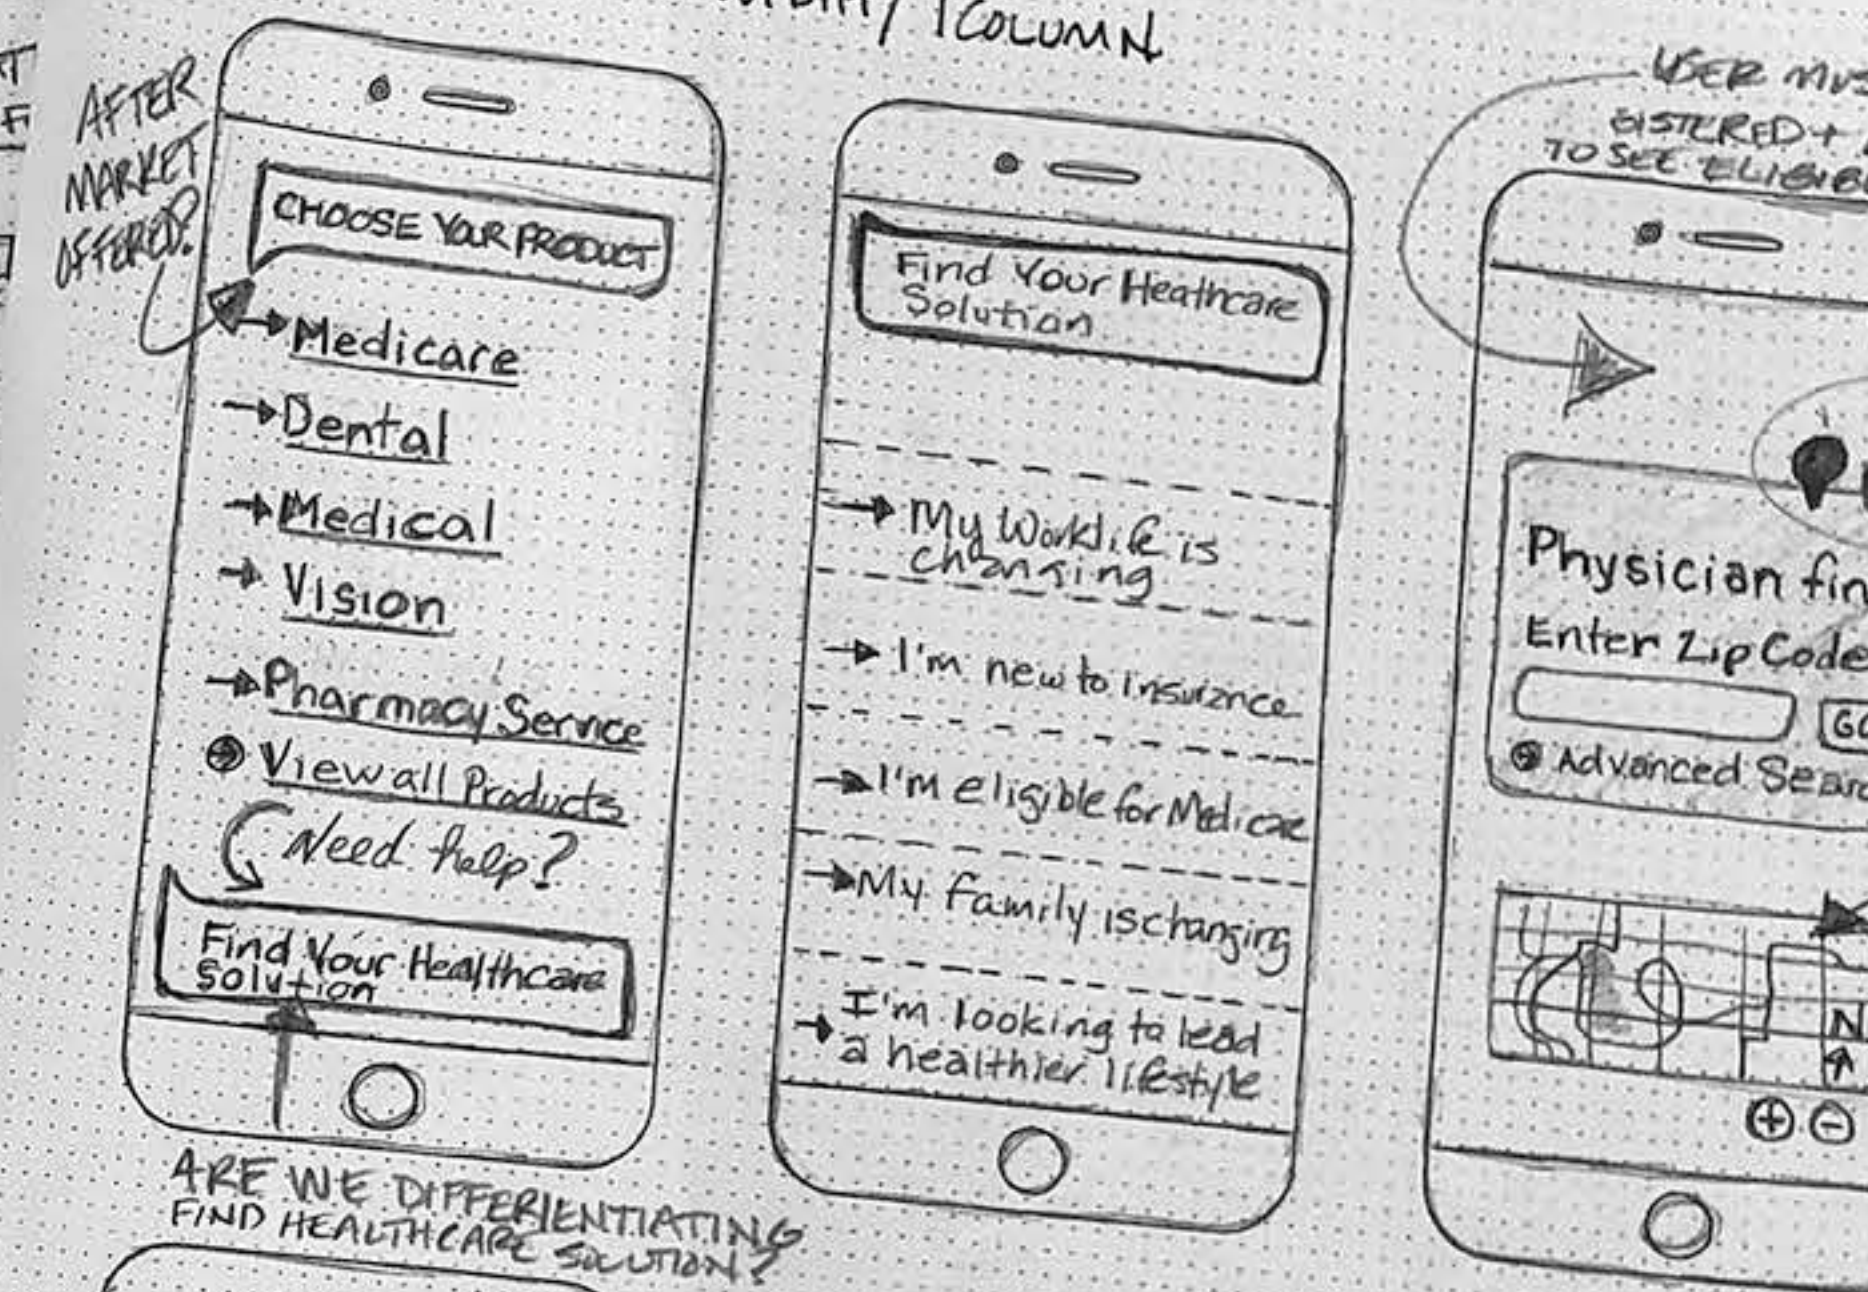 1 COLUMN
AFTER
MARKET
OFFERED?
CHOOSE YOUR PRODUCT
Medicare
Dental
Medical
Vision
Pharmacy Service
View all Products
Need help?
Find Your Healthcare
Solution
ARE WE DIFFERIENTIATING
FIND HEALTHCARE SOLUTION?
Find Your Heathcare
Solution
My Worklife is
changing
I'm new to insurance
I'm eligible for Medicare
My family is changing
I'm looking to lead
a healthier lifestyle
USER
TO SEE
Physician
Enter Zip Code
Advanced
N